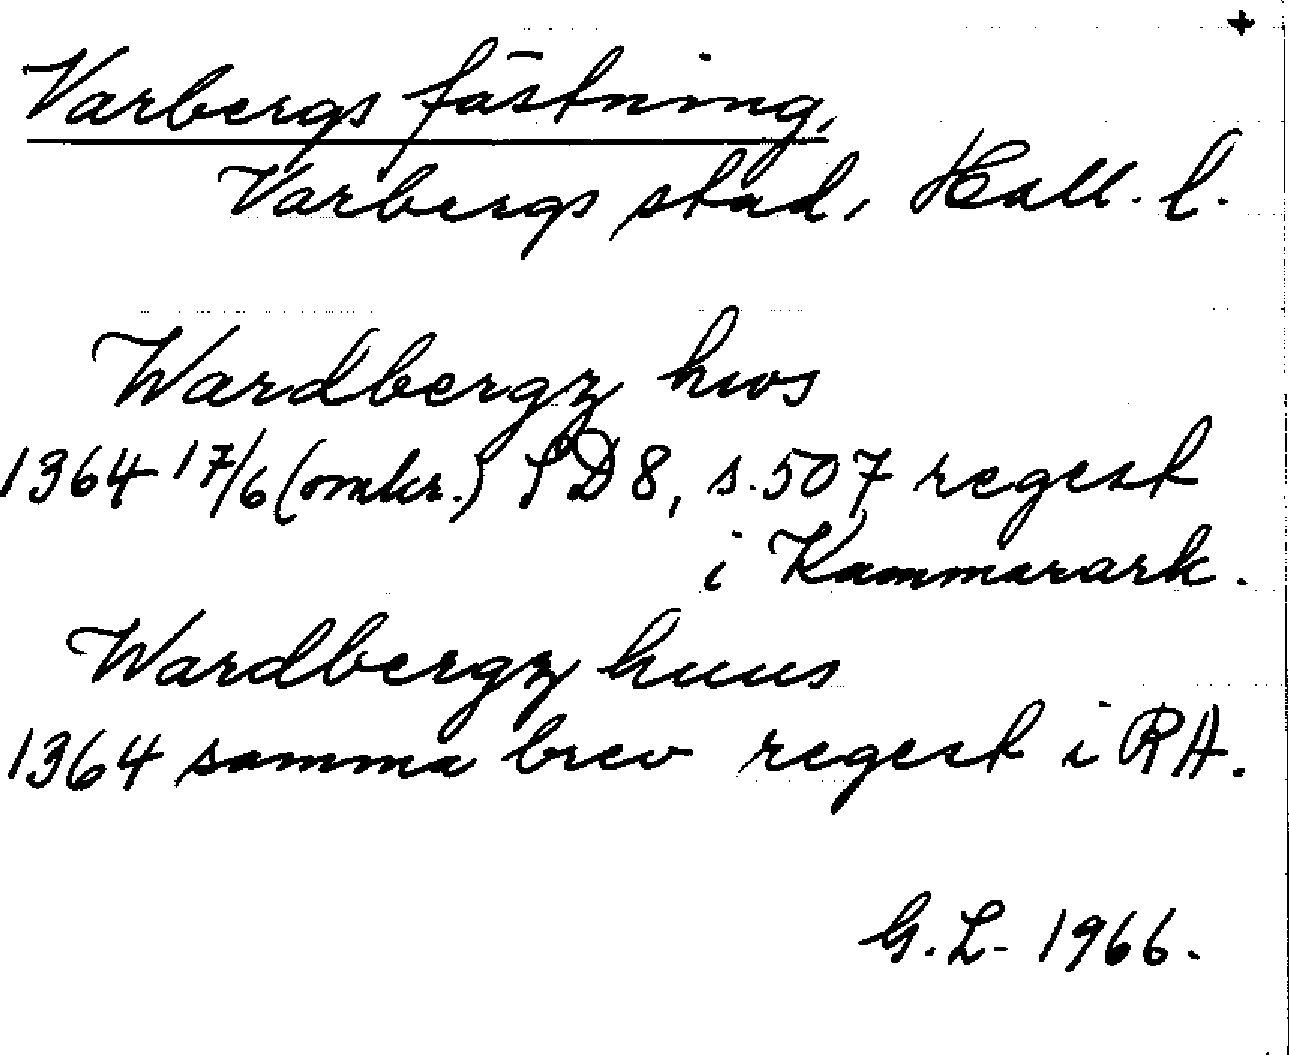 +
Varbergs fästning,
Varbergs stad, Hall. l.
Wardbergz hws
1364 17/6 (omkr.) SD 8, s. 507 regest
i Kammarark.
Wardbergz huus
1364 samma brev regest i RA.
G. L. 1966.